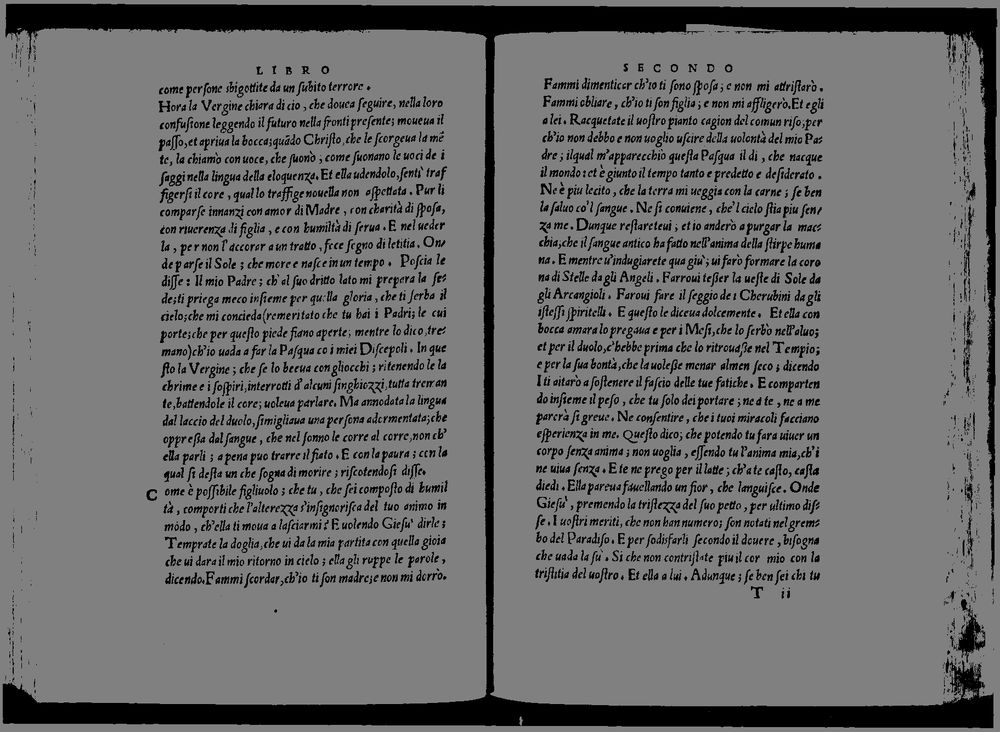 LIBRO
come perſone sbigottite da un ſubito terrore.
Hora la Vergine chiara di cio, che douea ſeguire, nella loro
confuſione leggendo il futuro nella fronti preſente; moueua il
paſſo, et apriua la bocca; quãdo Chriſto, che le ſcorgeua la mẽ
te, la chiamò con uoce, che ſuonò, come ſuonano le uoci de i
ſaggi nella lingua della eloquenza. Et ella udendolo, ſentì traf
figerſi il core, qual lo traffige nouella non aſpettata. Pur li
comparſe innanzi con amor di Madre, con charità di ſpoſa,
con riuerenza di figlia, e con humiltà di ſerua. E nel ueder
la, per non l'accorar a un tratto, fece ſegno di letitia. On⸗
de parſe il Sole; che more e naſce in un tempo. Poſcia le
diſſe: Il mio Padre; ch'al ſuo dritto lato mi prepara la ſe⸗
de; ti priega meco inſieme per quella gloria, che ti ſerba il
cielo; che mi concieda (remeritato che tu hai i Padri; le cui
porte; che per queſto piede fiano aperte, mentre lo dico, tre⸗
mano) ch'io uada a far la Paſqua co i miei Diſcepoli. In que
ſto la Vergine; che ſe lo beeua con gliocchi; ritenendo le la
chrime e i ſoſpiri, interrotti d'alcuni ſinghiozzi, tutta treman
te, battendole il core; uoleua parlare. Ma annodata la lingua
dal laccio del duolo, ſimigliaua una perſona adormentata; che
oppreſſa dal ſangue, che nel ſonno le corre al corre, non ch'
ella parli; a pena puo trarre il fiato. E con la paura; con la
qual ſi deſta un che ſogna di morire; riſcotendoſi diſſe.
Come è poſſibile figliuolo; che tu, che ſei compoſto di humil
tà, comporti che l'alterezza s'inſignoriſca del tuo animo in
modo, ch'ella ti moua a laſciarmi? E uolendo Gieſu' dirle;
Temprate la doglia, che ui da la mia partita con quella gioia
che ui dara il mio ritorno in cielo; ella gli ruppe le parole,
dicendo. Fammi ſcordar, ch'io ti ſon madre; e non mi dorrò.
SECONDO
Fammi dimenticar ch'io ti ſono ſpoſa; e non mi attriſtarò.
Fammi obliare, ch'io ti ſon figlia; e non mi affligerò. Et egli
a lei. Racquetate il uoſtro pianto cagion del comun riſo, per
ch'io non debbo e non uoglio uſcire della uolontà del mio Pa⸗
dre; ilqual m'apparecchiò queſta Paſqua il di, che nacque
il mondo: et è giunto il tempo tanto e predetto e deſiderato.
Ne è piu lecito, che la terra mi ueggia con la carne; ſe ben
la ſaluo co'l ſangue. Ne ſi conuiene, che'l cielo ſtia piu ſen⸗
za me. Dunque reſtareteui; et io anderò a purgar la mac⸗
chia, che il ſangue antico ha fatto nell'anima della ſtirpe huma
na. E mentre u'indugiarete qua giu'; ui farò formare la coro
na di Stelle da gli Angeli. Farroui teſſer la ueſte di Sole da
gli Arcangioli. Faroui fare il ſeggio de i Cherubini da gli
iſteſſi ſpiritelli. E queſto le diceua dolcemente. Et ella con
bocca amara lo pregaua e per i Meſi, che lo ſerbò nell'aluo;
et per il duolo, c'hebbe prima che lo ritrouaſſe nel Tempio;
e per la ſua bontà, che la uoleſſe menar almen ſeco; dicendo
I ti aitarò a ſoſtenere il faſcio delle tue fatiche. E comparten
do inſieme il peſo, che tu ſolo dei portare; ne a te, ne a me
parerà ſi greue. Ne conſentire, che i tuoi miracoli facciano
eſperienza in me. Queſto dico; che potendo tu fara uiuer un
corpo ſenza anima; non uoglia, eſſendo tu l'anima mia, ch'i
ne uiua ſenza. E te ne prego per il latte; ch'a te caſto, caſta
diedi. Ella pareua fauellando un fior, che languiſce. Onde
Gieſu', premendo la triſtezza del ſuo petto, per ultimo diſ⸗
ſe. I uoſtri meriti, che non han numero; ſon notati nel grem⸗
bo del Paradiſo. E per ſodisfarli ſecondo il douere, biſogna
che uada la ſu'. Si che non contriſtate piu il cor mio con la
triſtitia del uoſtro. Et ella a lui. Adunque; ſe ben ſei chi tu
T ii